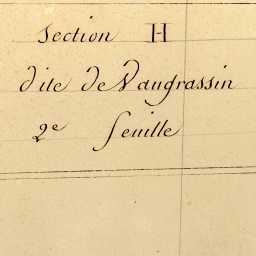 Section H
dite de Vaugrassin
2e feuille